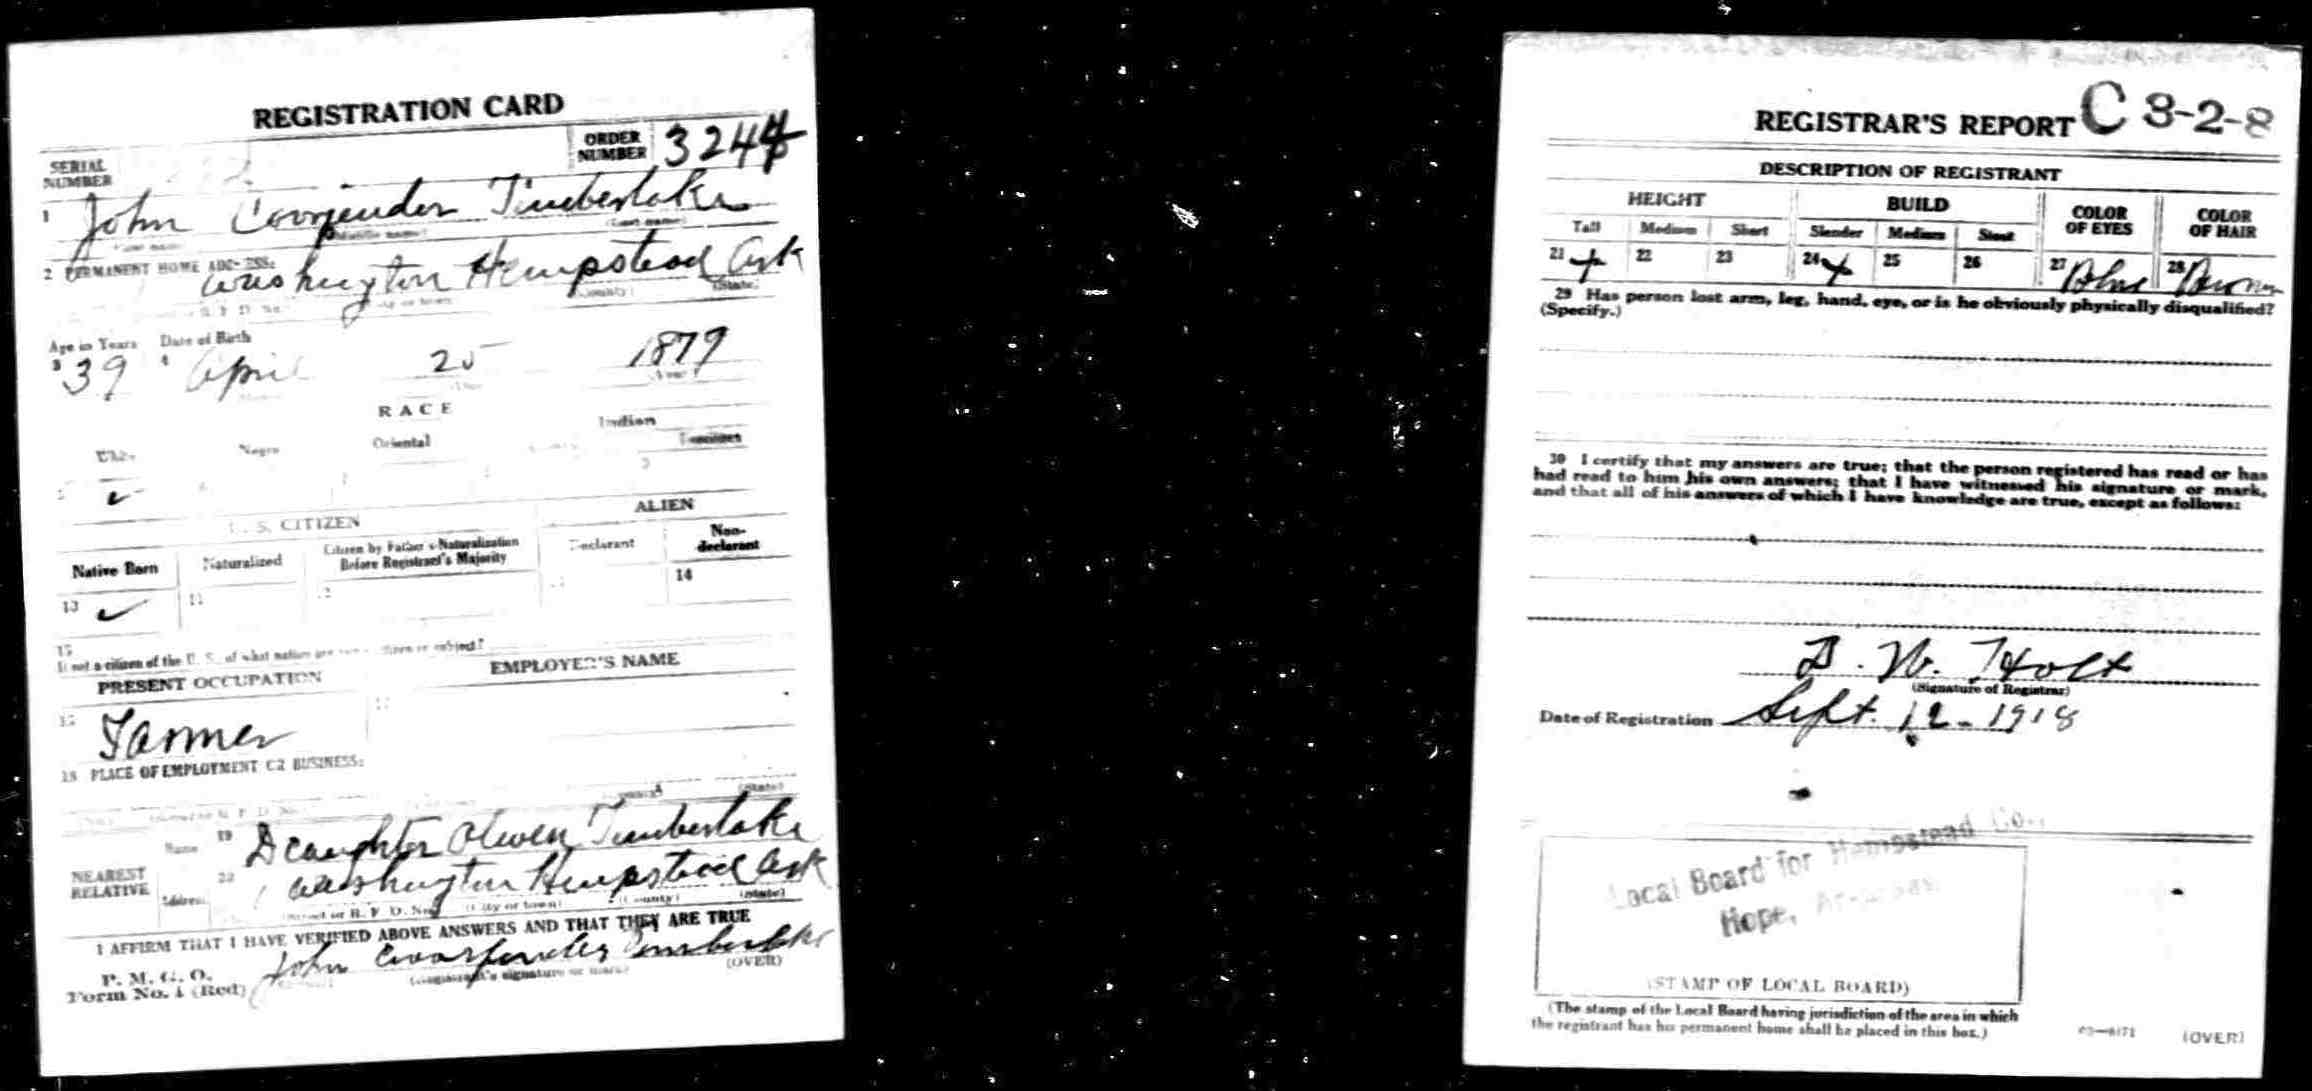 REGISTRATION CARD
SERIAL NUMBER
ORDER NUMBER 3244
1 John Timberlake
(Middle name) (Last name)
2 PERMANENT HOME ADDRESS:
Washington Hempstead Ark
(County) (State)
Age in Years Date of Birth
3 39 4 April 25 1879
RACE
White Negro Oriental Indian
✓
U. S. CITIZEN ALIEN
Native Born Naturalized Citizen by Father's Naturalization Before Registrant's Majority Declarant Non-declarant
10 ✓ 11 12 14
15
If not a citizen of the U. S., of what nation are you a citizen or subject?
PRESENT OCCUPATION EMPLOYER'S NAME
Farmer
18 PLACE OF EMPLOYMENT OR BUSINESS:
(State)
NEAREST RELATIVE
Name 19 Daughter Timberlake
Address 20 Washington Hempstead Ark
(Street or R. F. D. No.) (City or town) (County) (State)
I AFFIRM THAT I HAVE VERIFIED ABOVE ANSWERS AND THAT THEY ARE TRUE
P. M. G. O.
Form No. 1 (Red)
John Timberlake
(Registrant's signature or mark) (OVER)
REGISTRAR'S REPORT C 3-2-8
DESCRIPTION OF REGISTRANT
HEIGHT BUILD COLOR OF EYES COLOR OF HAIR
Tall Medium Short Slender Medium Stout
21 x 22 23 24 x 25 26 27 Blue 28 Brown
29 Has person lost arm, leg, hand, eye, or is he obviously physically disqualified?
(Specify.)
30 I certify that my answers are true; that the person registered has read or has
had read to him his own answers; that I have witnessed his signature or mark,
and that all of his answers of which I have knowledge are true, except as follows:
W. Holt
(Signature of Registrar)
Date of Registration Sept. 12-1918
Local Board for Hempstead Co.,
Hope, Arkansas
(STAMP OF LOCAL BOARD)
(The stamp of the Local Board having jurisdiction of the area in which
the registrant has his permanent home shall be placed in this box.)
(OVER)